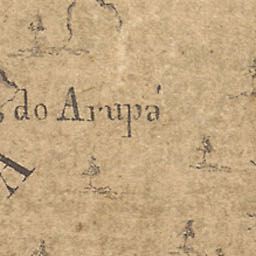 do Arupá
A